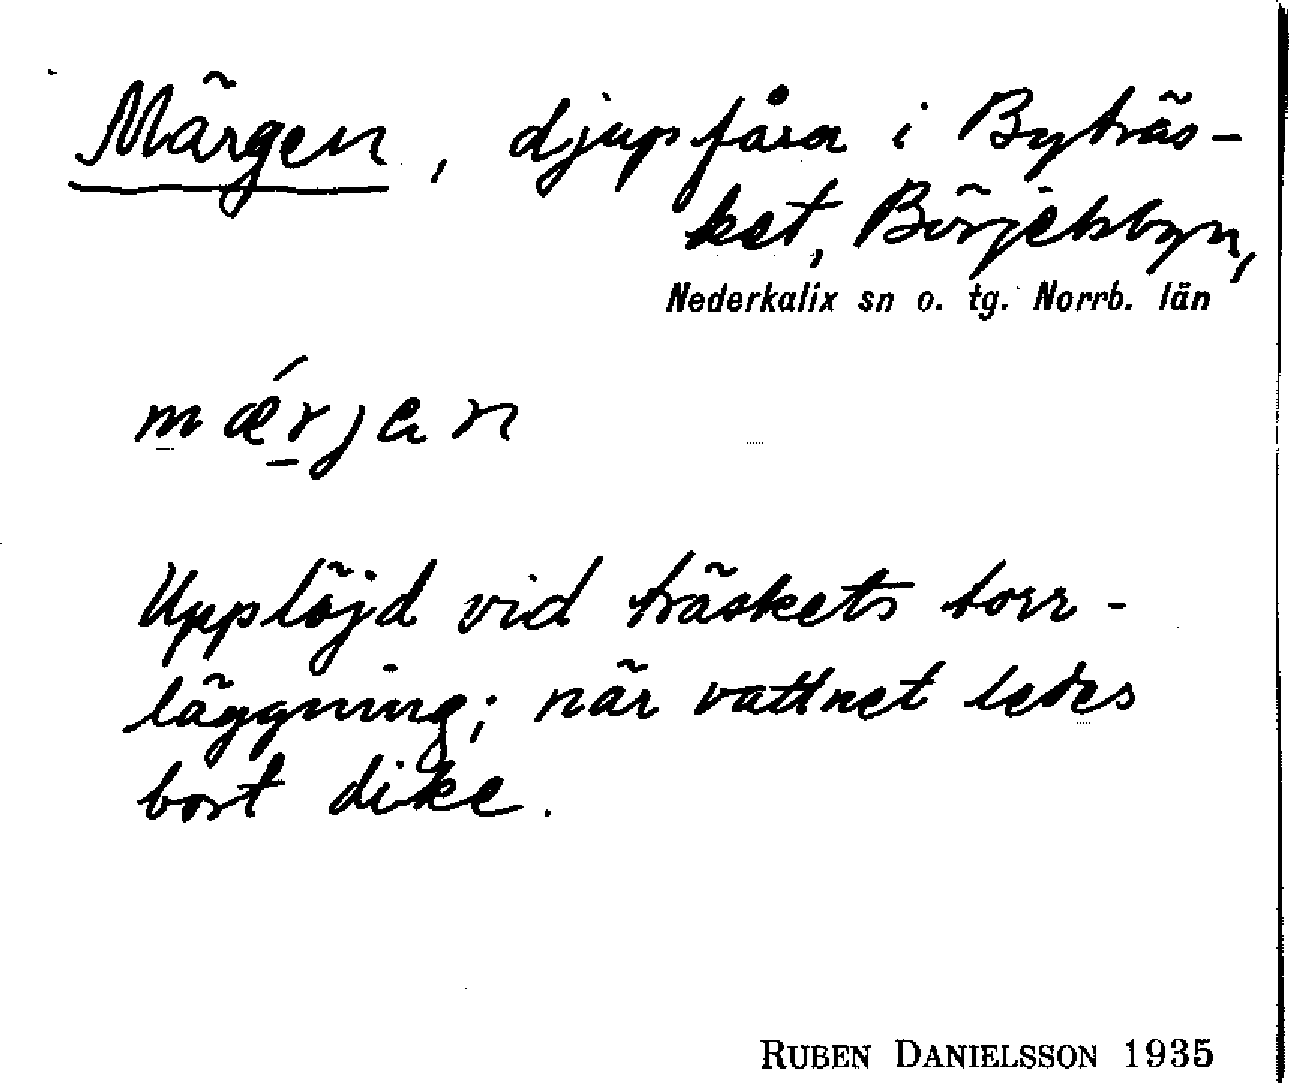 Märgen, djupfåra i Byträs-
ket, Börjelsbyn,
Nederkalix sn o. tg. Norrb. län
mǽrjan
Upplöjd vid träskets torr-
läggning; när vattnet ledes
bort dike.
RUBEN DANIELSSON 1935